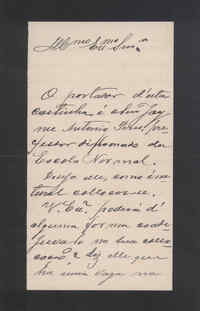 Illmo. e Exmo. Snr.
O portador d'esta
cartinha é o Snr. Jay
me Antonio pro
fessor diplomado da
Escola Normal.
elle, como é na
tural collocar-se.
V. Exa. poderá d'
alguma forma
na sua collo
cação? diz elle que
ha uma vaga na